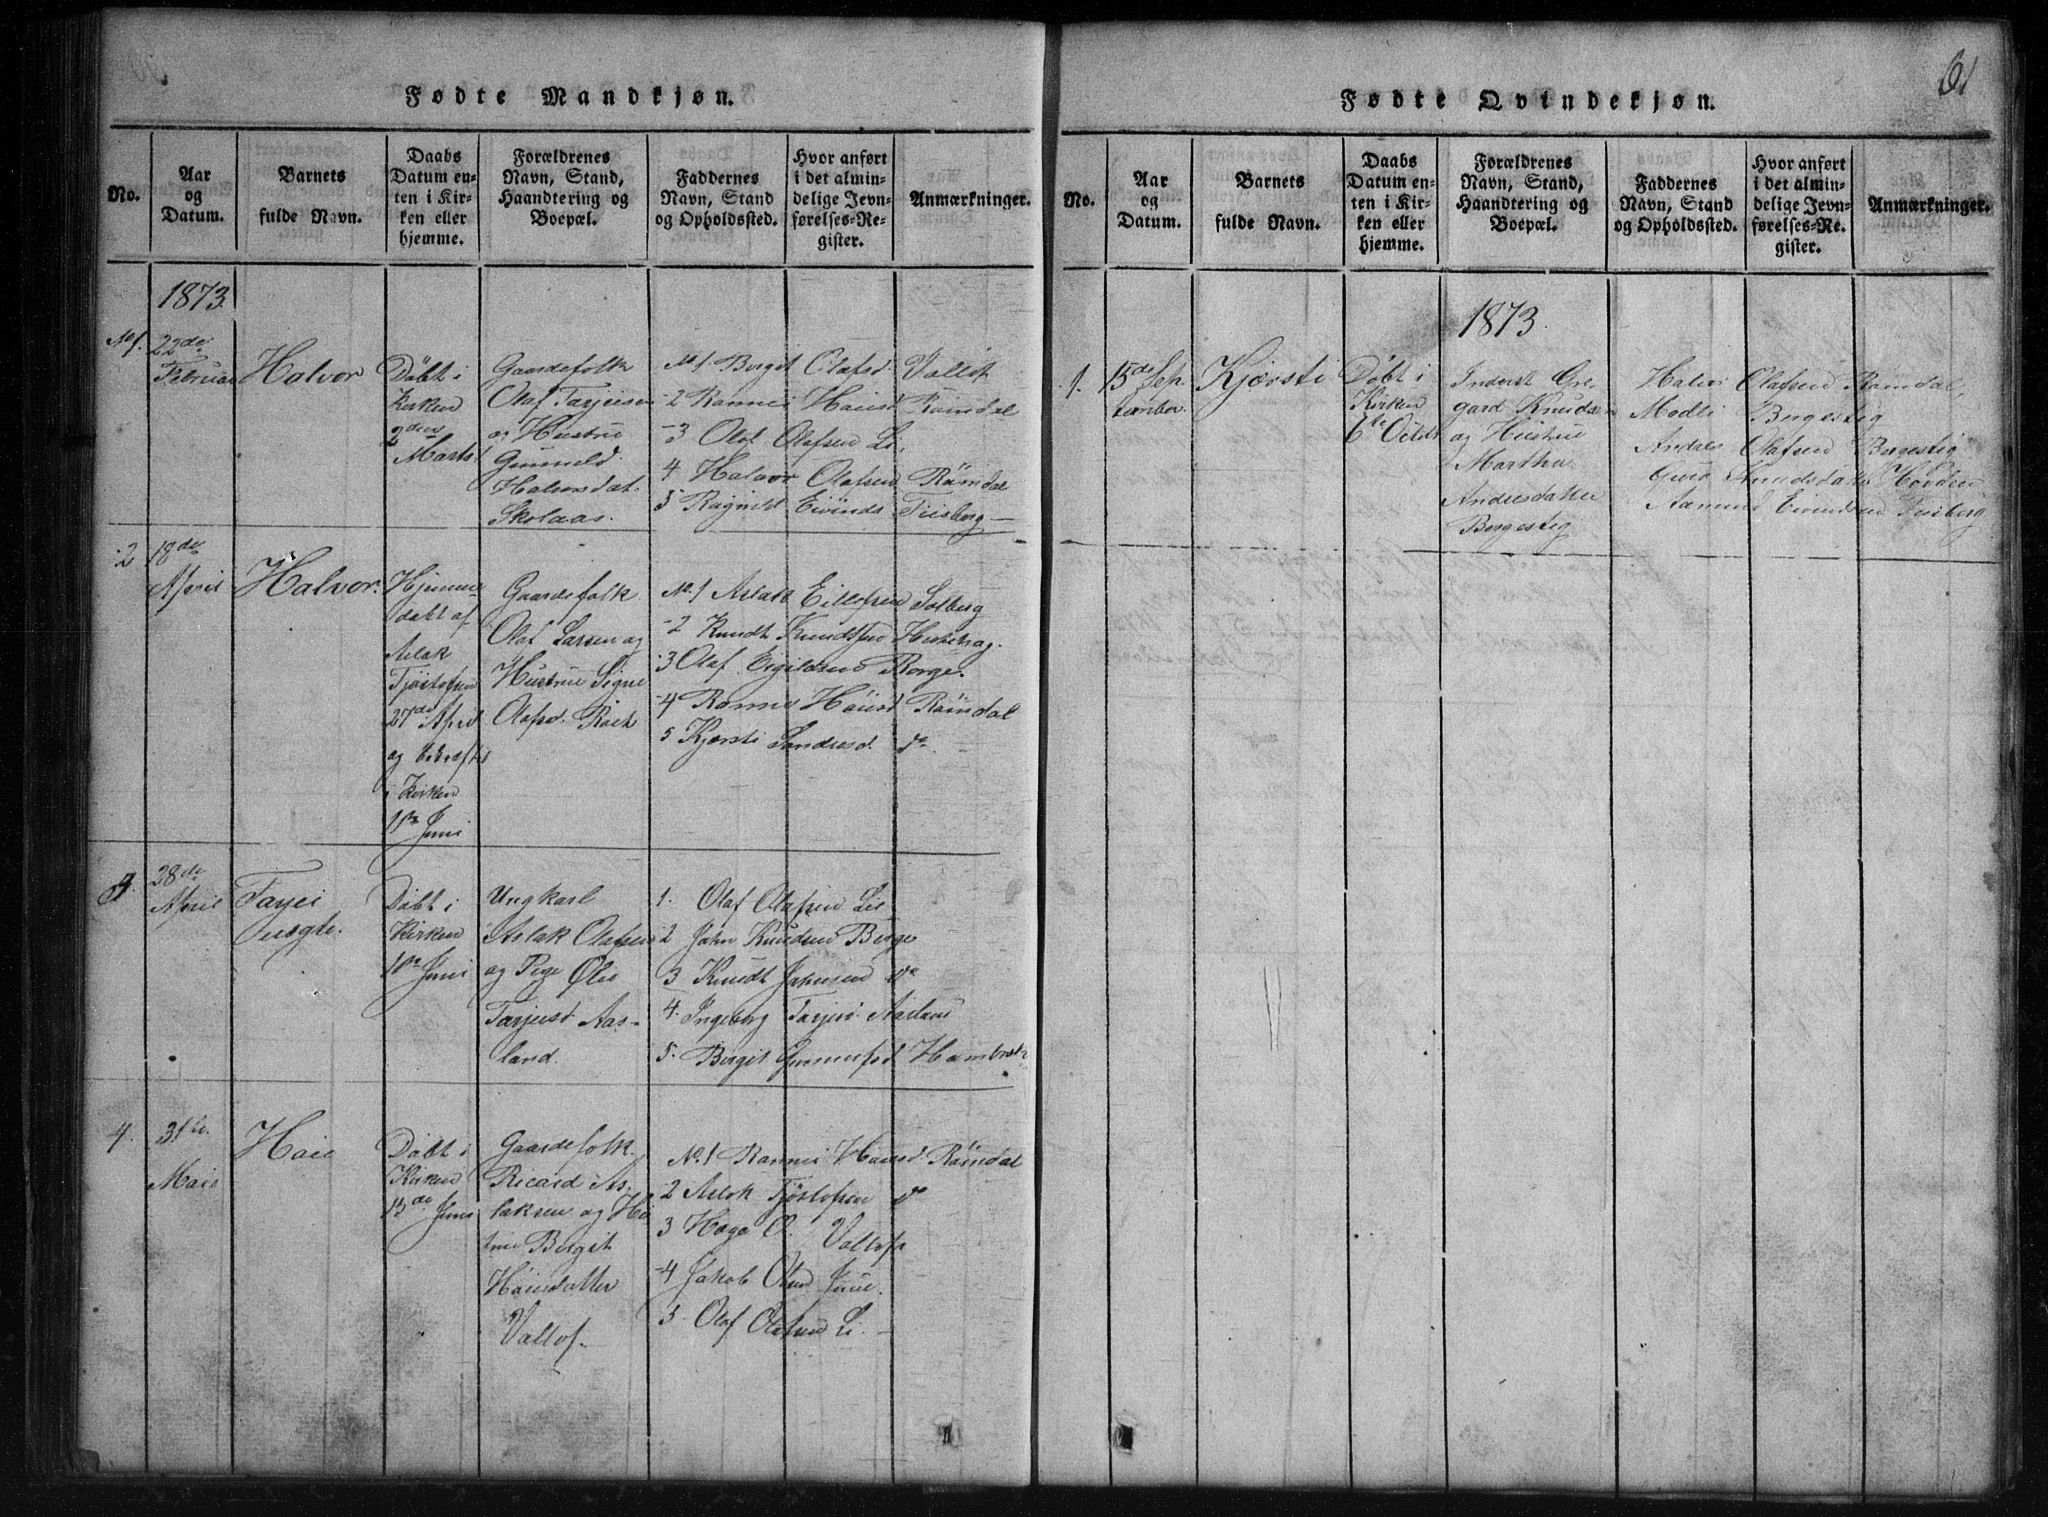 Fødte Mandkjøn.
No.
Aar
og
Datum.
Barnets
fulde Navn.
Daabs
Datum en-
ten i Kir-
ken eller
hjemme.
Forældrenes
Navn, Stand,
Haandtering og
Boepæl.
Faddernes
Navn, Stand
og Opholdssted.
Hvor anført
i det almin-
delige Jevn-
førelses-Re-
gister.
Anmærkninger.
1873
No 1.
22de
Februar
Halvor
Döbt i
Kirken
2den
Marts
Gaardefolk
Olaf Tarjeisen
og Hustrue
Gunnild
Halvorsdat.
Skolaas.
No 1 Bergit Olafsd Vallof
2 Rannei Haiesd Ramdal
3 Olaf Olafsen Li.
4 Halvor Olafsen Römdal
5 Ragnild Eivinds Fiisberg
2
18de
April
Halvor.
Hjemme
döbt af
Aslak
Tjöstofsen
27de April
og bekræftet
i Kirken
1ste Juni
Gaardefolk
Olaf Larsen og
Hustrue Signe
Olafsd.
No. 1 Aslak Eilefsen Solberg
2 Knudt Knudtsen
3 Olaf Borge.
4 Rannei Höiesd Römdal
5 Kjersti Sondresd do
3.
28de
April
Tarjei
Döbt i
Kirken
1ste Juni
Ungkarl
Aslak Olafsen
og Pige
Tarjeisd Aas-
land.
1. Olaf Olafsen Lie
2 John Knudsen Berge
3 Knudt Johnsen do
4. Ingeborg Tarjeisd Aasland
5. Bergit Gunnulfsd
4.
31te
Maii
Haie
Döbt i
Kirken
13de Juni
Gaardefolk.
Ricard As-
laksen og Hu
strue Bergit
Höiesdatter
Vallof.
No. 1 Rannei Haiesd Römdal
2 Aslak Tjöstofsen do
3 Hage O. Vallof
4 Jakob Olsen Juve.
5. Olaf Olafsen Li.
61
Fødte Qvindekjøn.
No.
Aar
og
Datum.
Barnets
fulde Navn.
Daabs
Datum en-
ten i Kir-
ken eller
hjemme.
Forældrenes
Navn, Stand,
Haandtering og
Boepæl.
Faddernes
Navn, Stand
og Opholdssted.
Hvor anført
i det almin-
delige Jevn-
førelses-Re-
gister.
Anmærkninger.
1873.
1.
15de Sep
tember
Kjersti
Döbt i
Kirken
6te Octbr
Inderst Gre-
gard Knudsen
og Hustrue
Martha
Andresdatter
Bergestig
Halvor Olafsen Ramdal,
Modti Bergestig
Andres Olafsen Bergestig
Guro Knudsdatter
Aamund Eivindsen Fiisberg